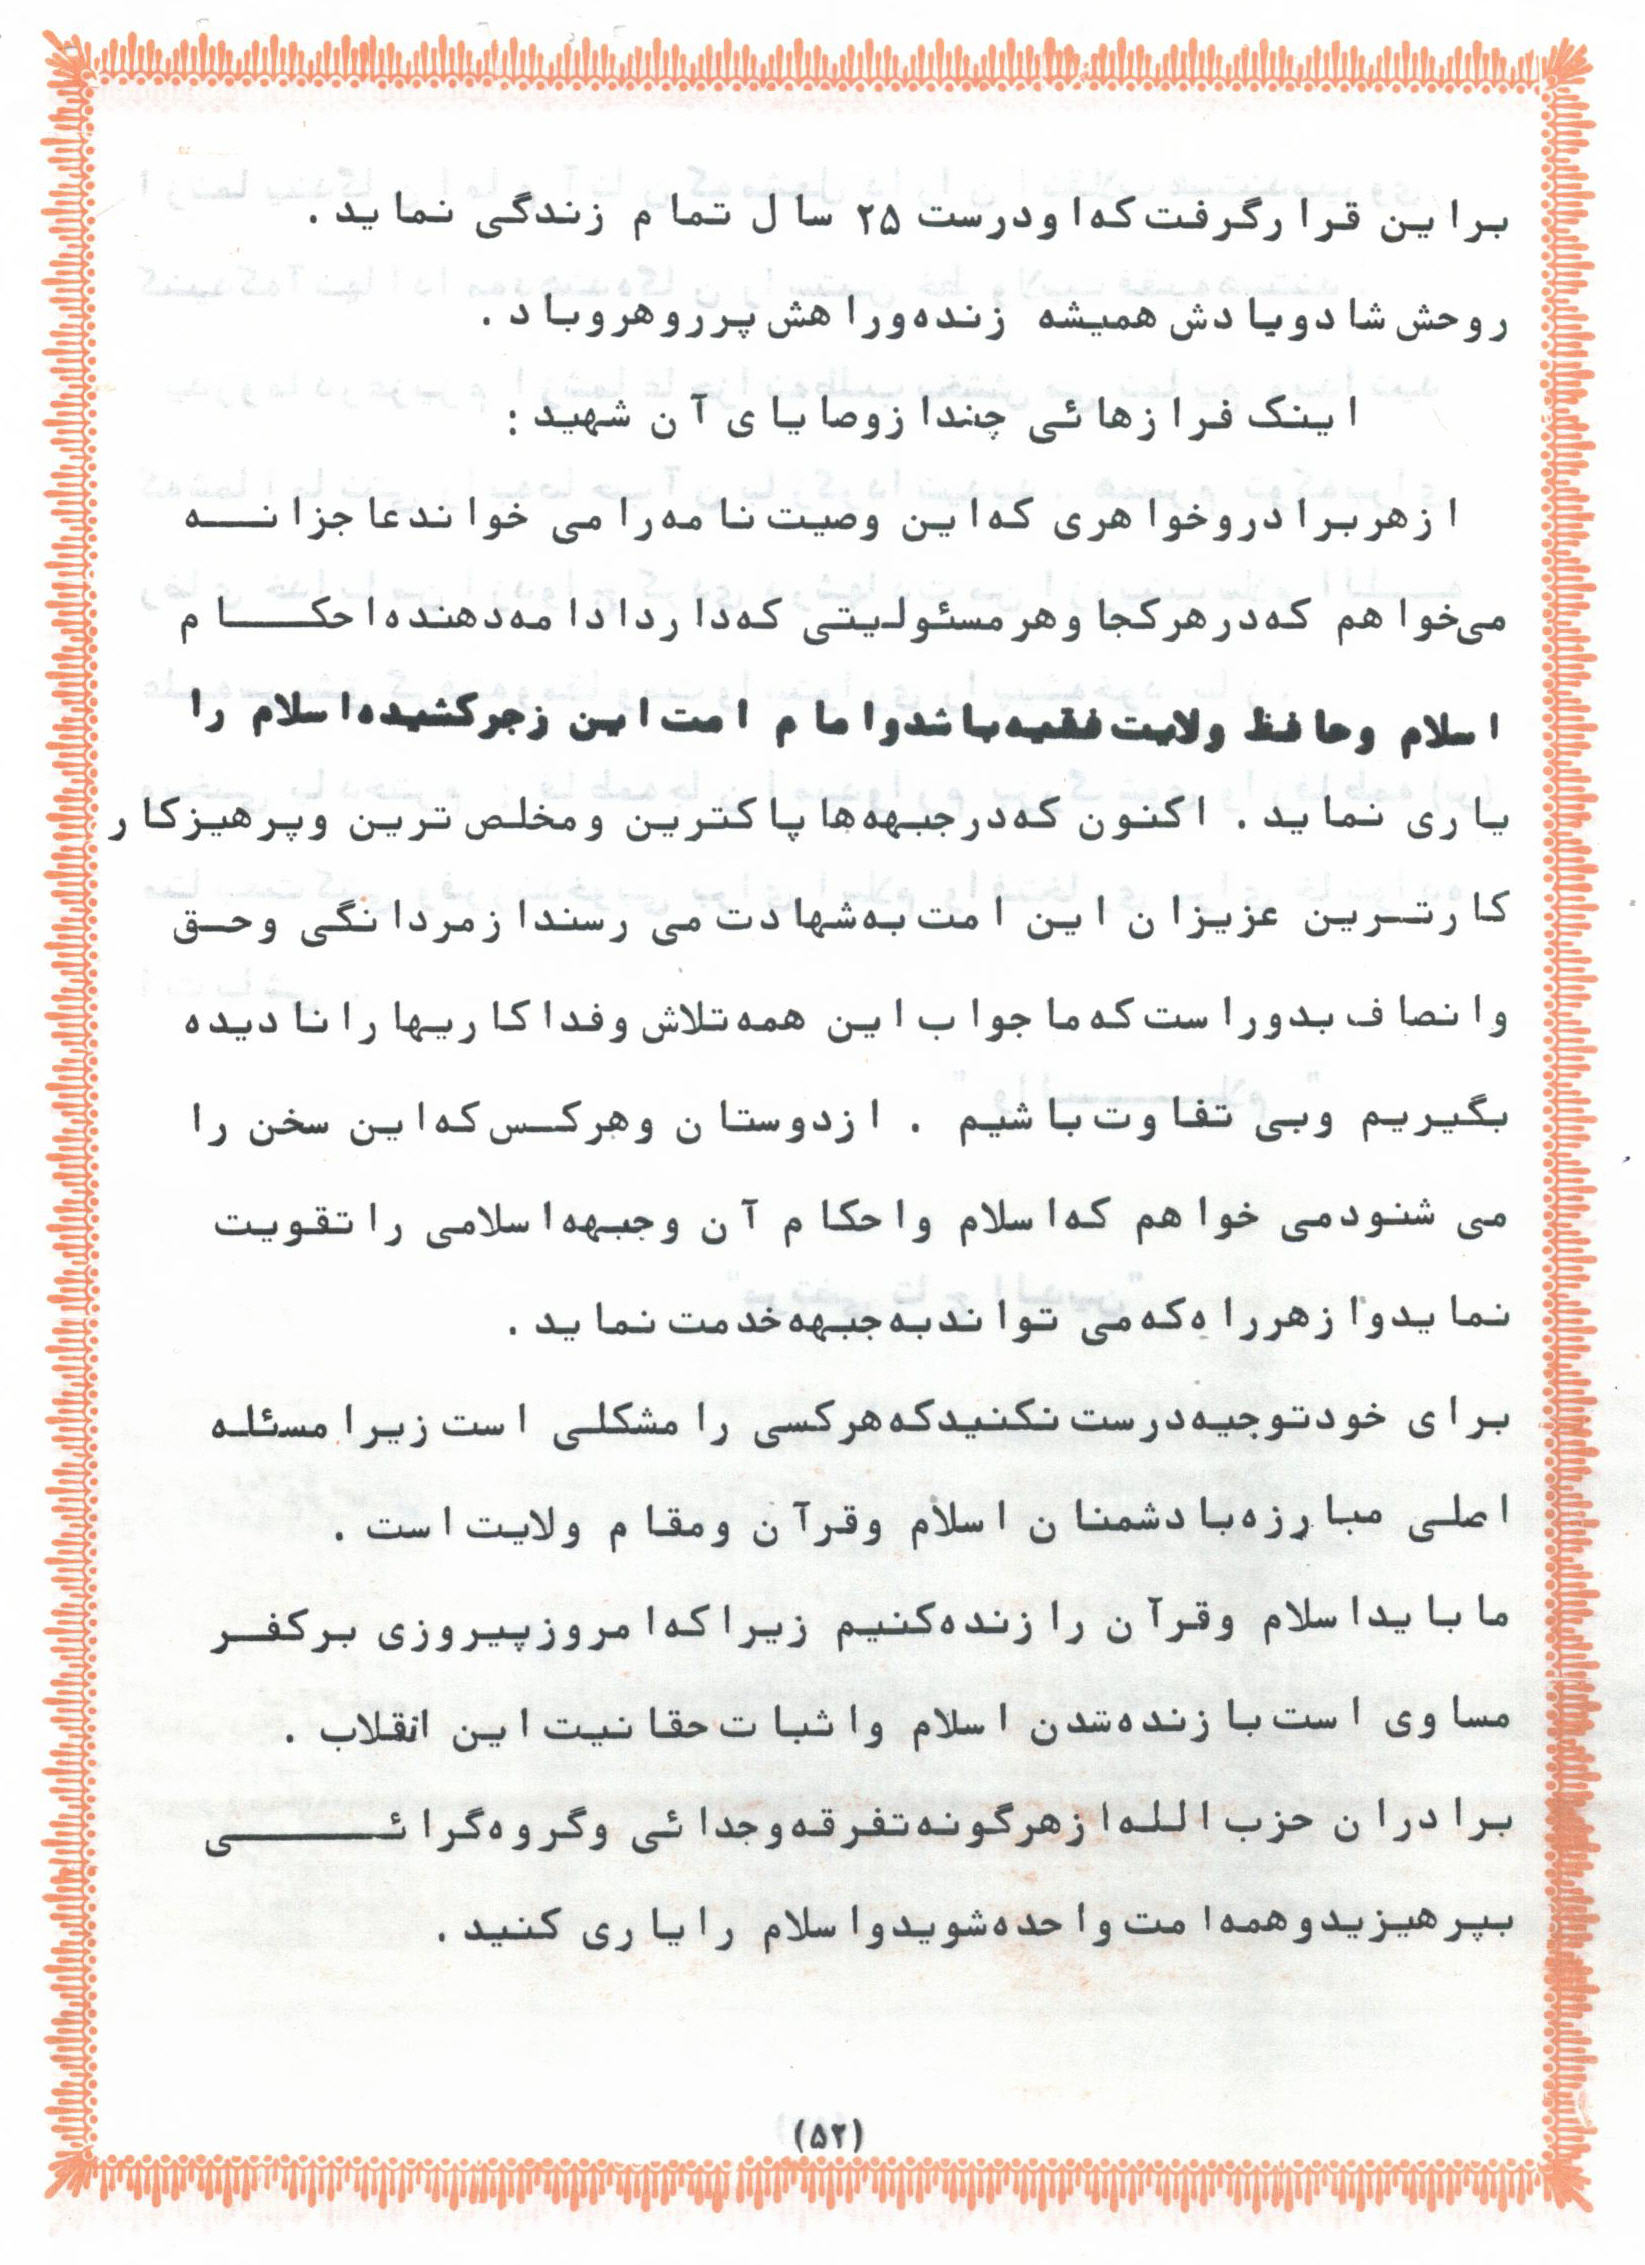 براین قرارگرفت که اودرست ۲۵ سال تمام زندگی نماید .
روحش شادویادش همیشه زنده وراهش پرروهروباد .
اینک فرازهائی چندازوصایای آن شهید :
ازهربرادروخواهری که این وصیت نامه رامی خواندعاجزانه
می‌خواهم که درهرکجا وهرمسئولیتی که داردادامه دهنده احکام
اسلام وحافظ ولایت فقیه باشدوامام امت این زجرکشیده اسلام را
یاری نماید . اکنون که درجبهه ها پاکترین ومخلص ترین وپرهیزکار
کارترین عزیزان این امت به شهادت می رسندازمردانگی وحق
وانصاف بدوراست که ما جواب این همه تلاش وفداکاریها رانادیده
بگیریم وبی تفاوت باشیم . ازدوستان وهرکس که این سخن را
می شنودمی خواهم که اسلام واحکام آن وجبهه اسلامی راتقویت
نمایدوازهرراه که می تواندبه جبهه خدمت نماید .
برای خودتوجیه درست نکنیدکه هرکسی را مشکلی است زیرا مسئله
اصلی مبارزه بادشمنان اسلام وقرآن ومقام ولایت است .
ما بایداسلام وقرآن رازنده کنیم زیراکه امروزپیروزی برکفر
مساوی است با زنده شدن اسلام واثبات حقانیت این انقلاب .
برادران حزب الله ازهرگونه تفرقه وجدائی وگروه گرائی
بپرهیزیدوهمه امت واحده شویدواسلام رایاری کنید .
(۵۲)